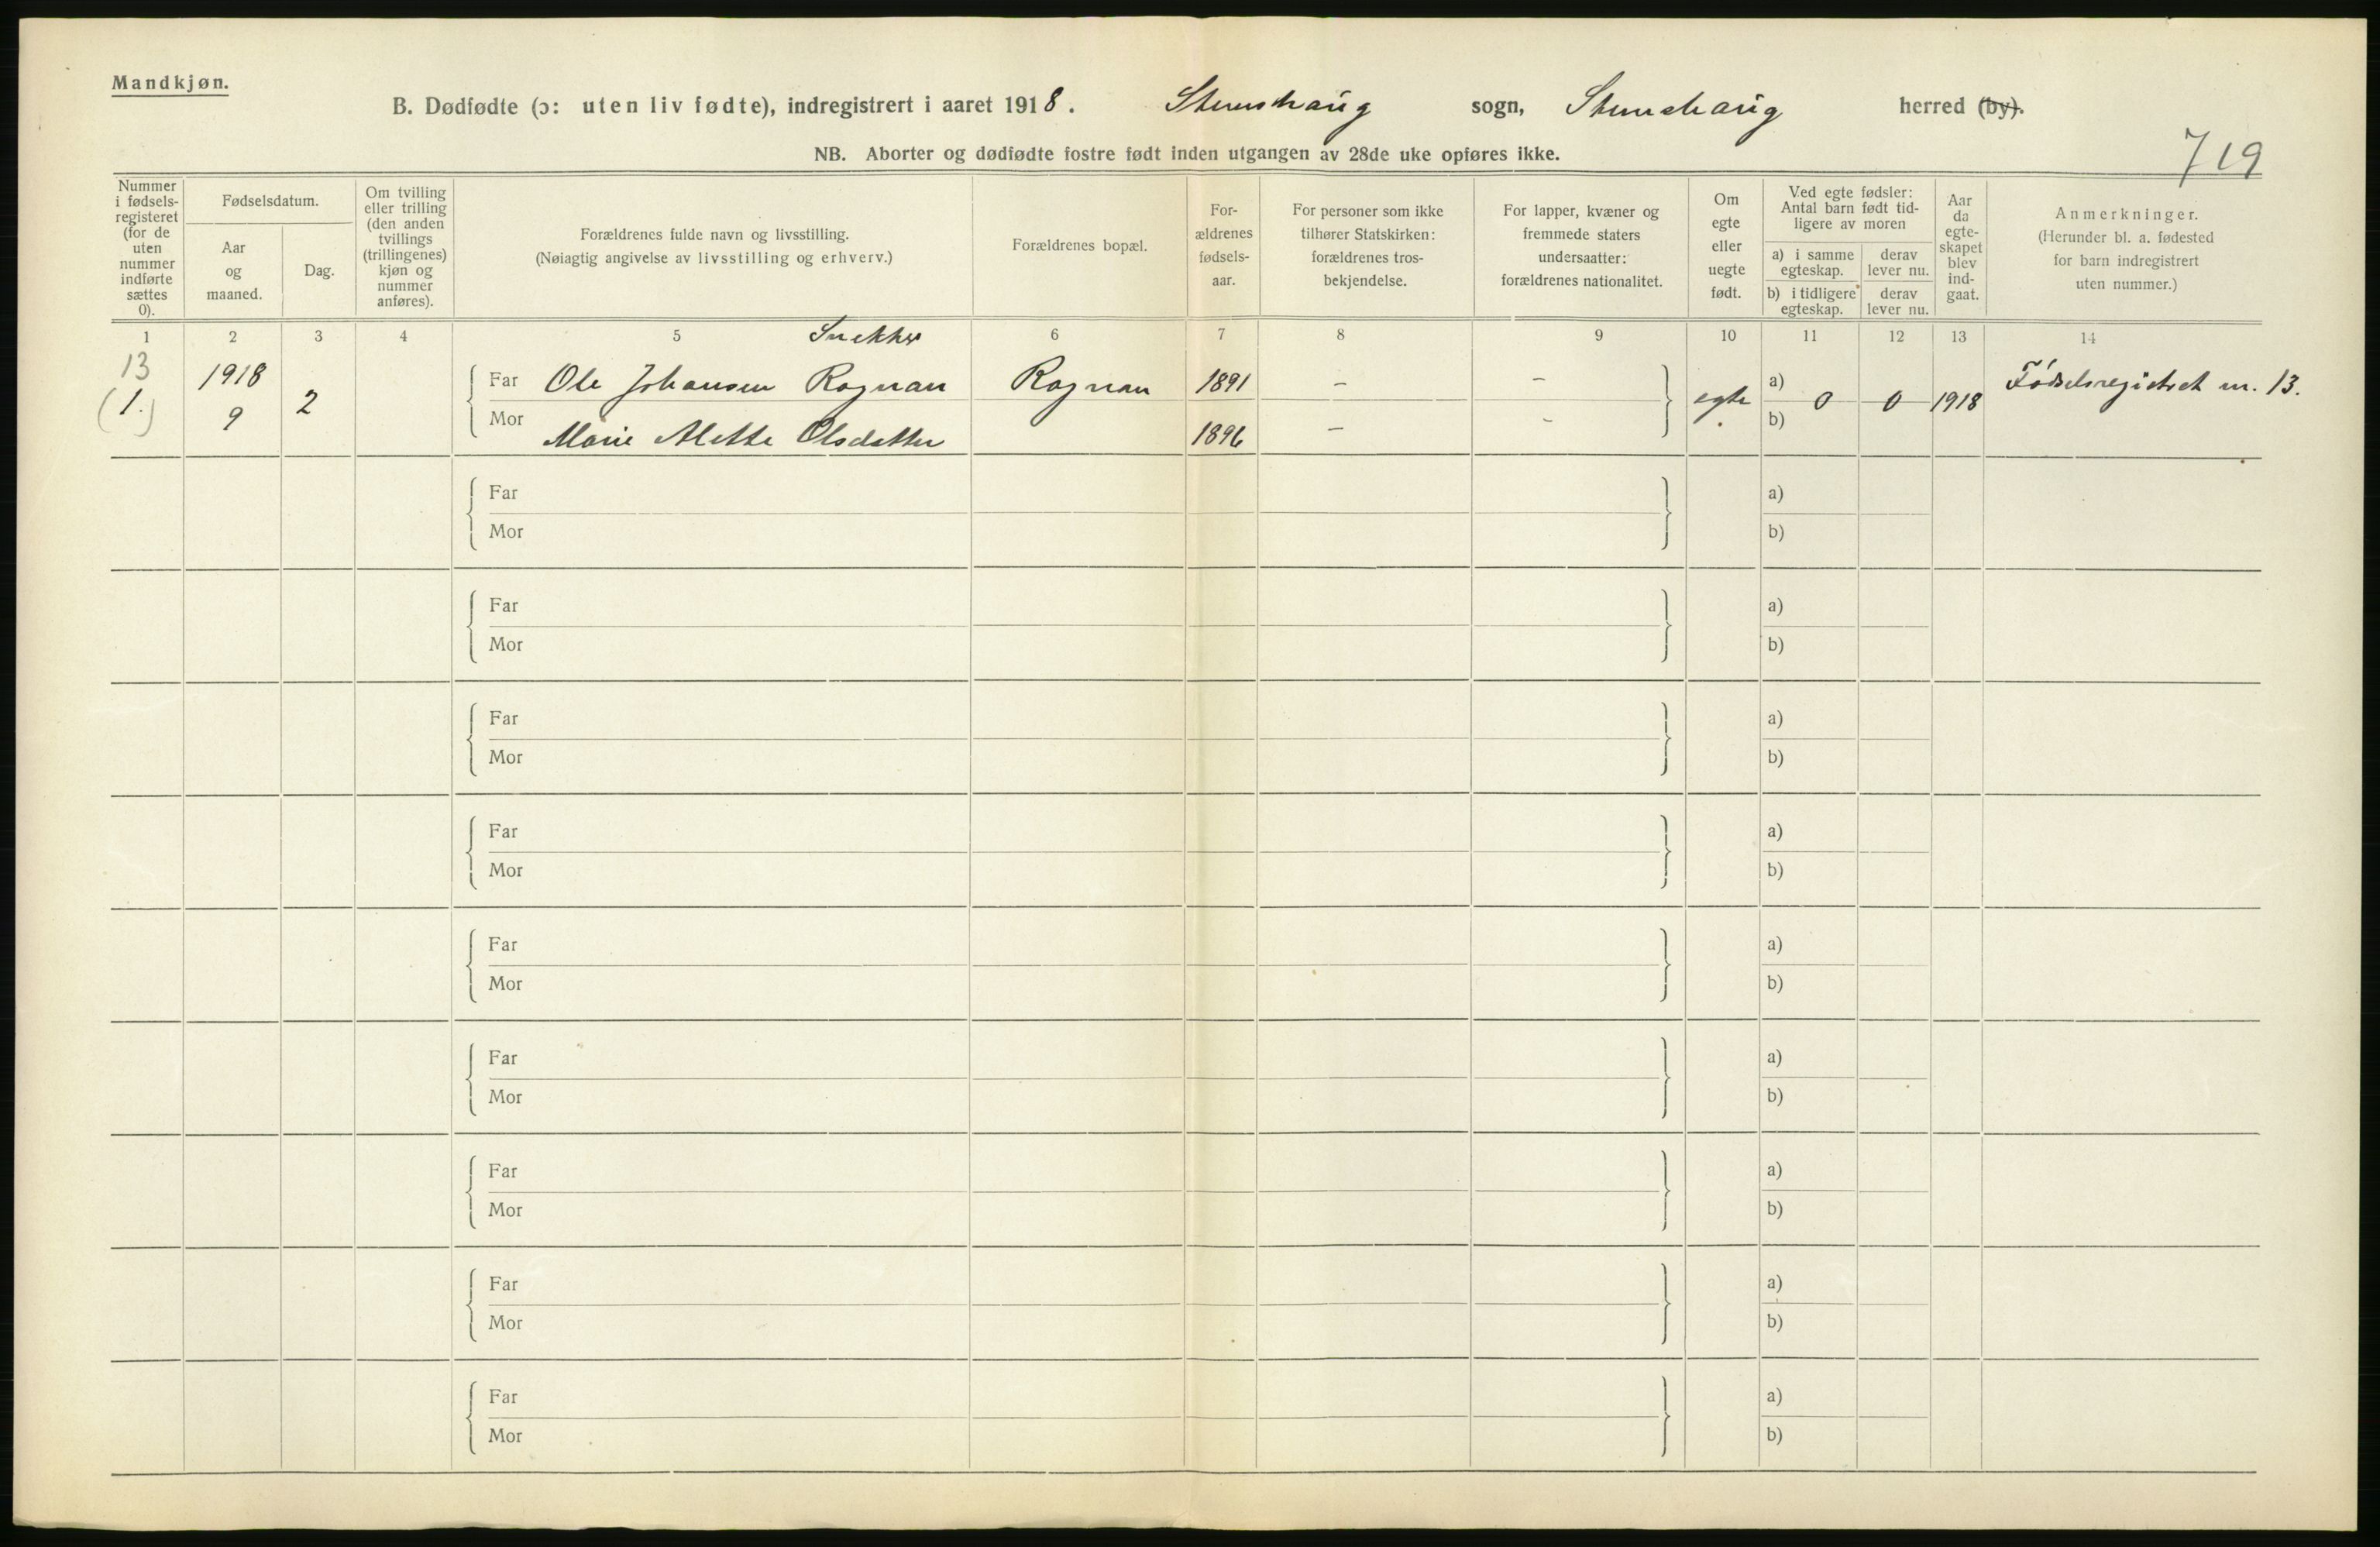 Mandkjøn.
B. Dødfødte (ɔ: uten liv fødte), indregistrert i aaret 1918. Stemshaug sogn, Stemshaug herred (by).
719
NB. Aborter og dødfødte fostre født inden utgangen av 28de uke opføres ikke.
Nummer i fødsels-registeret (for de uten nummer indførte sættes 0).
Fødselsdatum.
Aar og maaned.
Dag.
Om tvilling eller trilling (den anden tvillings (trillingenes) kjøn og nummer anføres).
Forældrenes fulde navn og livsstilling.
(Nøiagtig angivelse av livsstilling og erhverv.)
Forældrenes bopæl.
For-ældrenes fødsels-aar.
For personer som ikke tilhører Statskirken: forældrenes tros-bekjendelse.
For lapper, kvæner og fremmede staters undersaatter: forældrenes nationalitet.
Om egte eller uegte født.
Ved egte fødsler: Antal barn født tid-ligere av moren
a) i samme egteskap.
derav lever nu.
b) i tidligere egteskap.
derav lever nu.
Aar da egte-skapet blev ind-gaat.
Anmerkninger.
(Herunder bl. a. fødested for barn indregistrert uten nummer.)
1 2 3 4 5 6 7 8 9 10 11 12 13 14
Snekker
13 1918 Far Ole Johansen Rognan Rognan 1891 – – a) Fødselsregistret nr. 13.
(1.) 9 2 egte 0 0 1918
Mor Marie Alette Olsdatter 1896 – – b)
Far a)
Mor b)
Far a)
Mor b)
Far a)
Mor b)
Far a)
Mor b)
Far a)
Mor b)
Far a)
Mor b)
Far a)
Mor b)
Far a)
Mor b)
Far a)
Mor b)